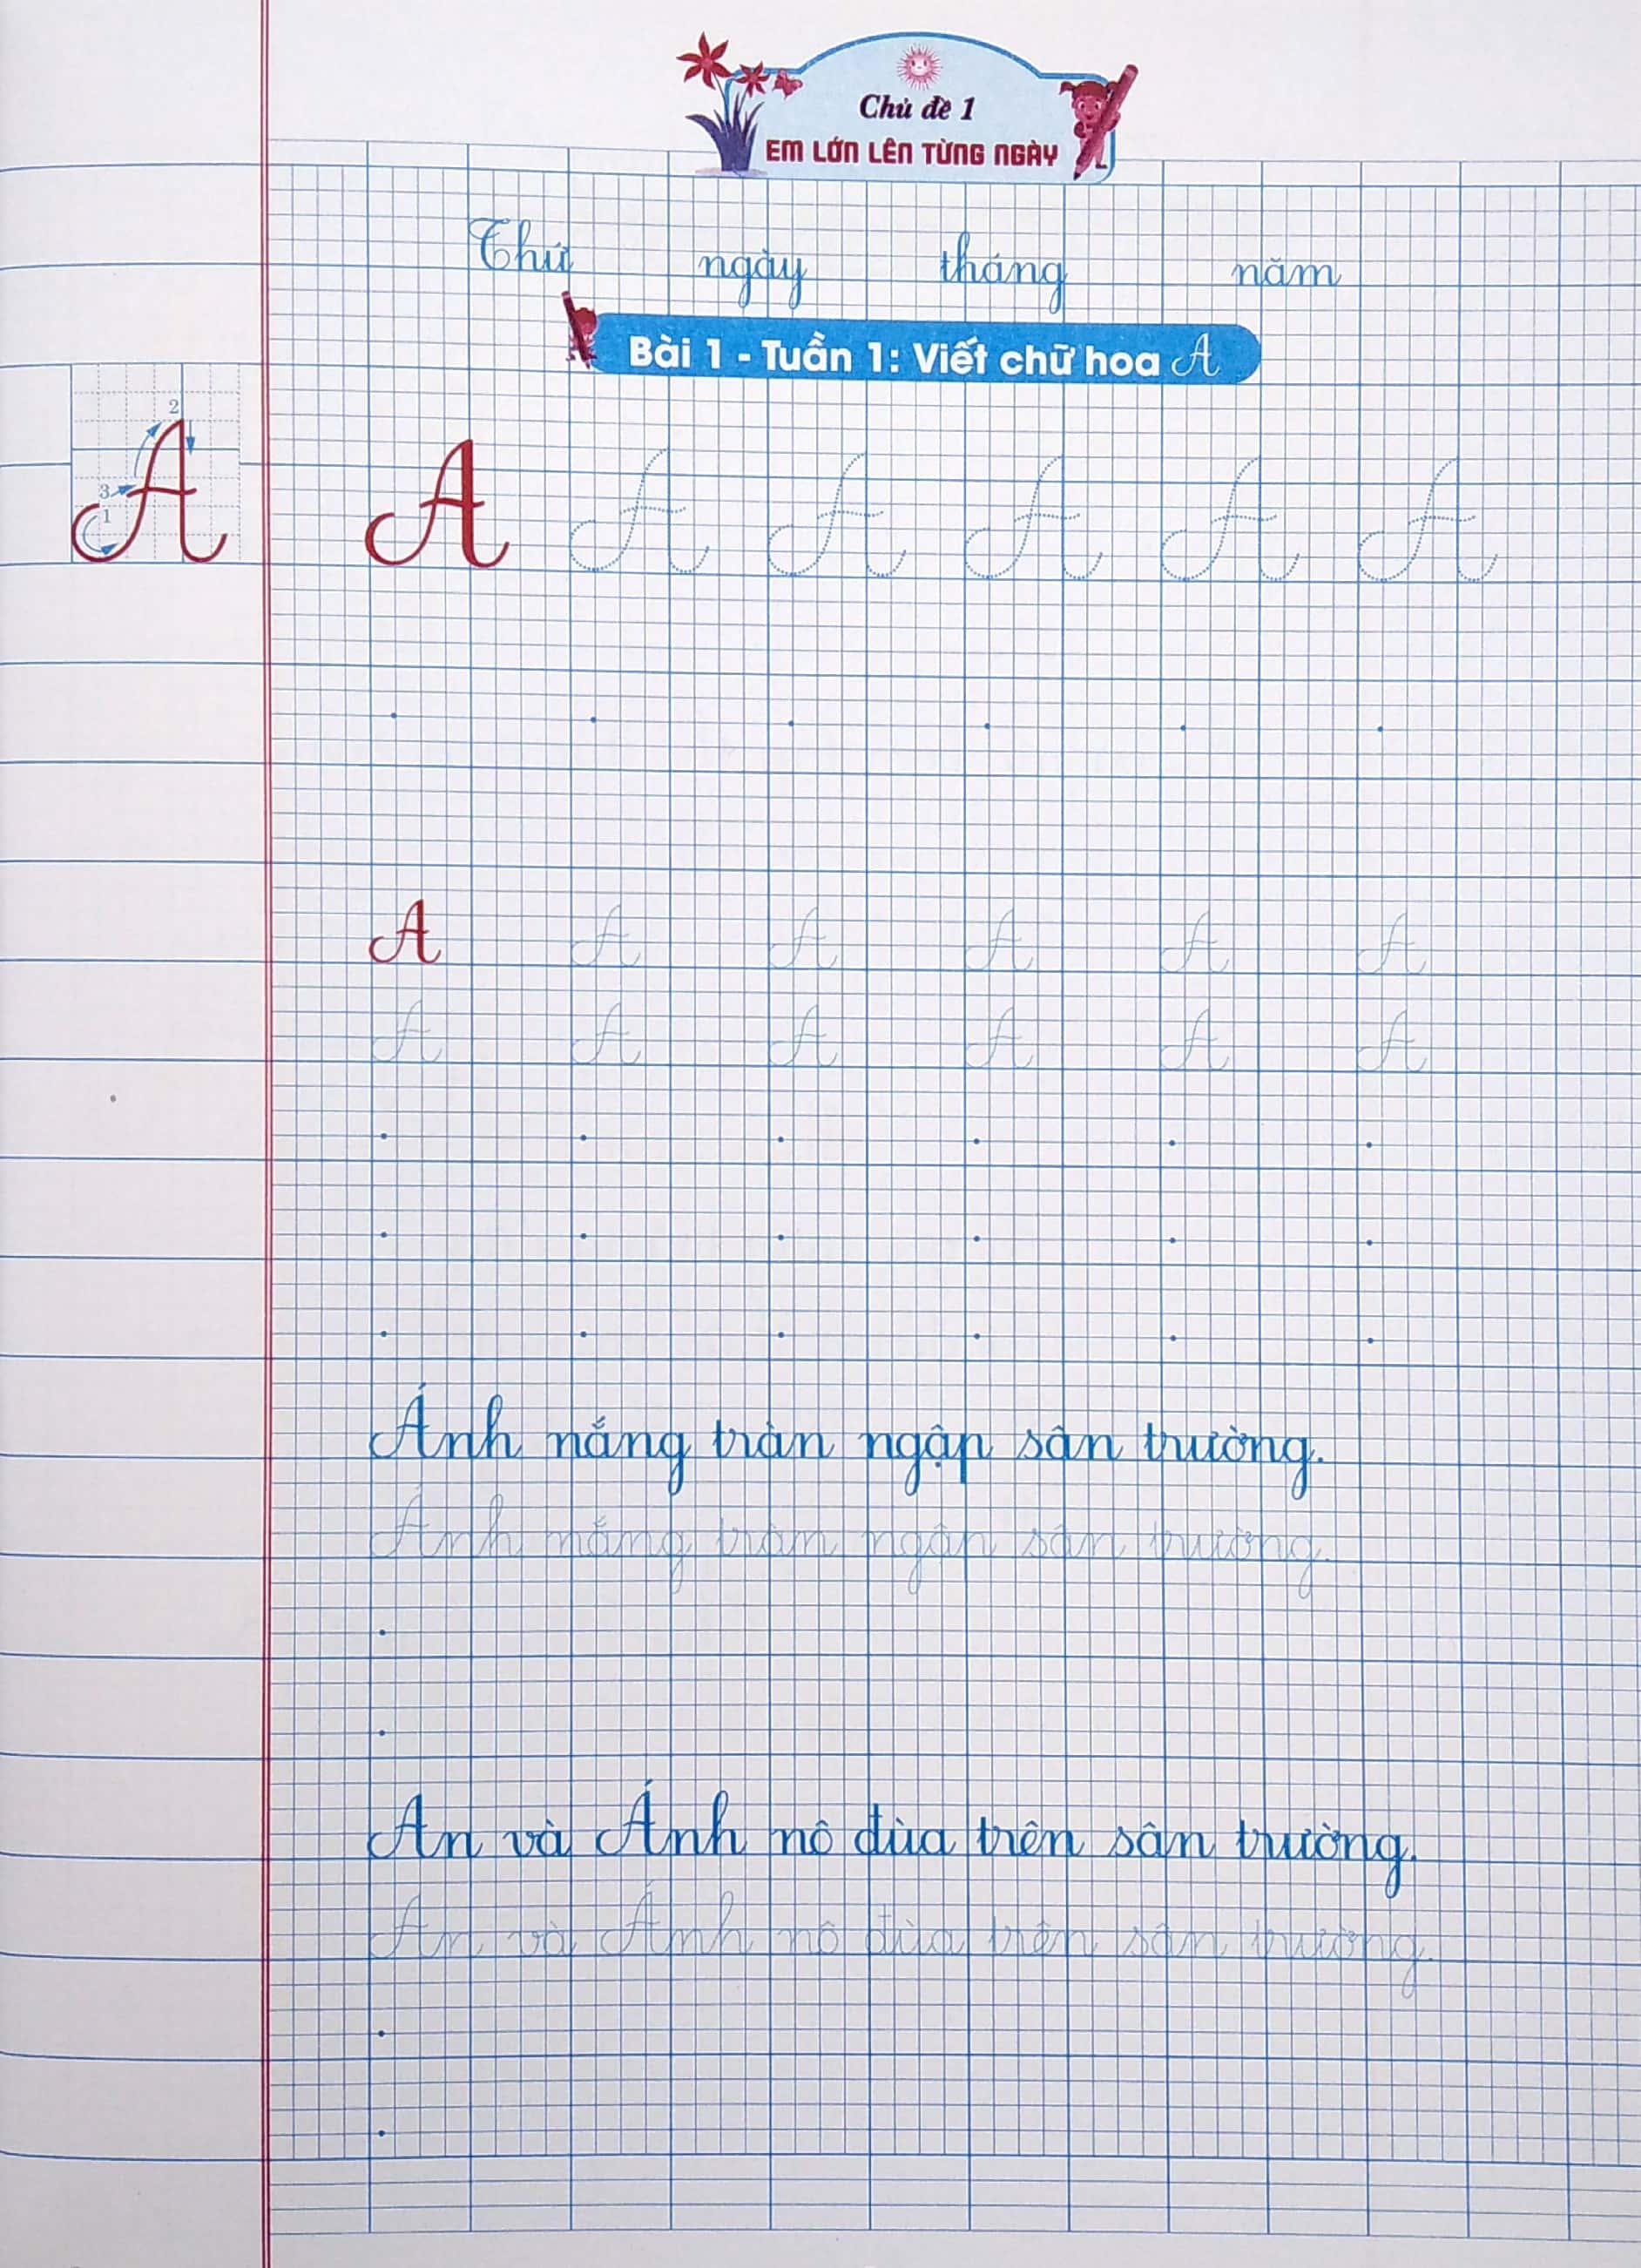 Chủ đề 1
EM LỚN LÊN TỪNG NGÀY
Thứ ngày tháng năm
Bài 1 - Tuần 1: Viết chữ hoa A
2
3
1
A
A A A A A A
A A A A A A
A A A A A A
Ánh nắng tràn ngập sân trường.
Ánh nắng tràn ngập sân trường.
An và Ánh nô đùa trên sân trường.
An và Ánh nô đùa trên sân trường.